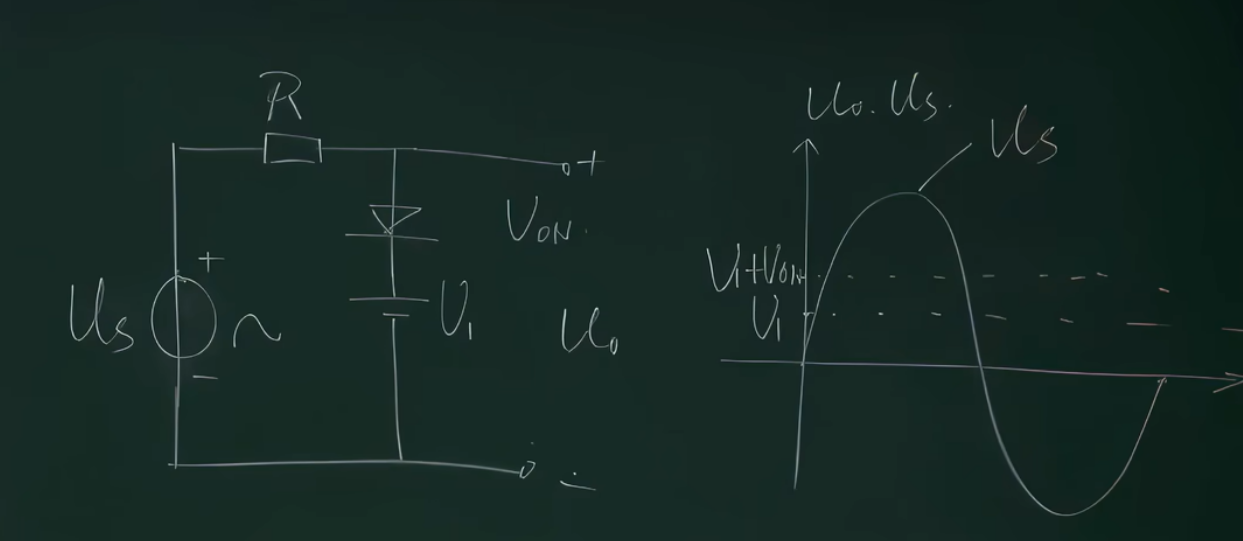 R
+
V_ON.
+
U_S
~
U_1
U_0
−
−
U_0. U_S.
U_S
V_1+V_ON
V_1